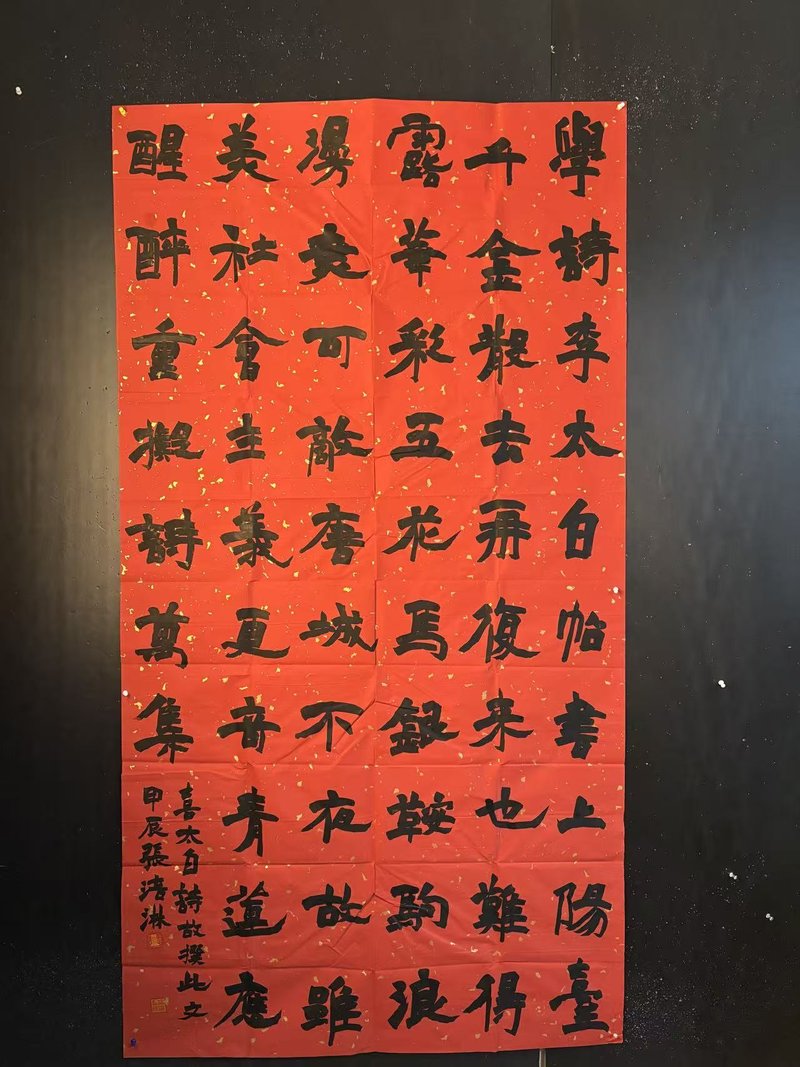 學詩李太白帖書上陽臺
千金散去再復来也難得
露華彩五花馬銀鞍駒浪
漫可敵唐城不夜故雖
美社會主義更音青蓮應
醒醉重擬詩萬集
喜太白詩故撰此文
甲辰張渚淋